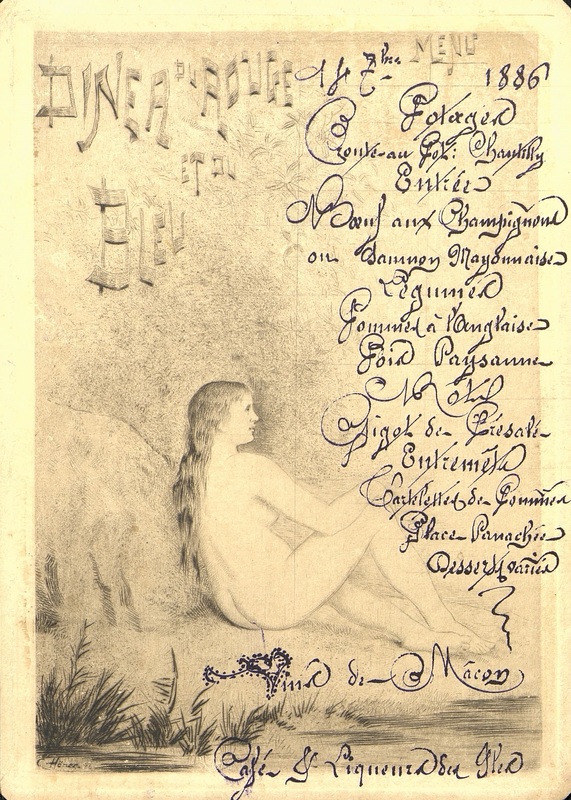 DINER DU ROUGE
ET DU
BLEU
MENU
14 7bre 1886
Potages
Croute au Pot: Chantilly
Entrée
Bœuf aux Champignons
ou Saumon Mayonnaise
Légumes
Pommes à l'Anglaise
Pois Paysanne
Rôts
Gigot de Présalé
Entremêts
Tartelettes de Pommes
Glace Panachée
Desserts variés
Vins de Mâcon
Café & Liqueurs des Iles